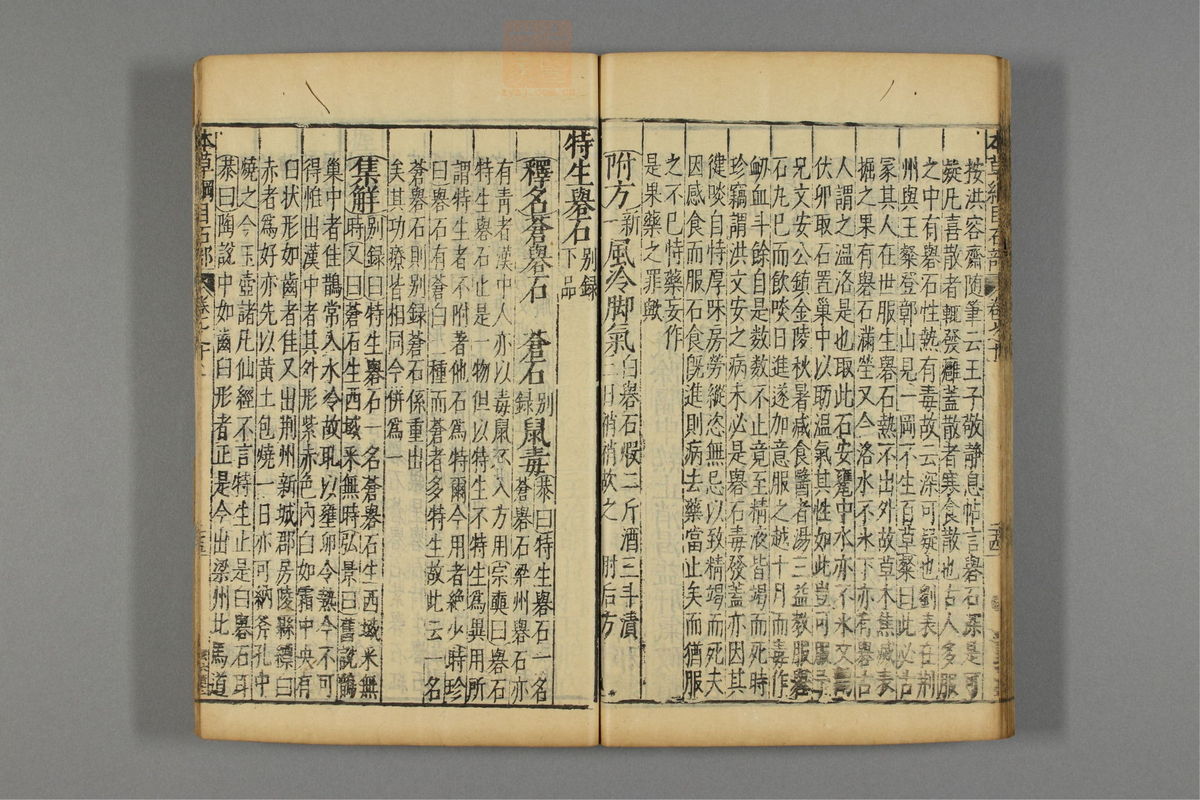 按洪容齋隨筆云王子敬靜息帖言礜石深是可
疑凡喜散者輒發癰蓋散者寒食散也古人多服
之中有礜石性熱有毒故云深可疑也劉表在荆
州與王粲登鄣山見一岡不生百草粲曰此必古
冢其人在世服生礜石熱不出外故草木焦滅表
掘之果有礜石滿塋又今洛水不氷下亦有礜石
人謂之温洛是也取此石安甕中水亦不氷文
伏卵取石置巢中以助温氣其性如此豈可服
兄文安公鎮金陵秋暑减食醫者湯三益教服礜
石丸已而飲啖日進遂加意服之越十月而毒作
衂血斗餘自是數數不止竟至精液皆竭而死時
珍竊謂洪文安之病未必是礜石毒發蓋亦因其
健啖自恃厚味房勞縱恣無忌以致精竭而死夫
因减食而服石食旣進則病去藥當止矣而猶服
之不已恃藥妄作
是果藥之罪歟
附方新一風冷脚氣白礜石煅二斤酒三斗漬三日稍稍飲之 肘后方
特生礜石别録下品
釋名蒼礜石 蒼石别録鼠毒恭曰特生礜石一名蒼礜石梁州礜石亦
有青者漢中人亦以毒鼠不入方用宗奭曰礜石
特生礜石止是一物但以特生不特生爲異用所
謂特生者不附著他石爲特爾今用者絶少時珍
曰礜石有蒼白二種而蒼者多特生故此云一名
蒼礜石則别録蒼石係重出
矣其功療皆相同今併爲一
集解别録曰特生礜石一名蒼礜石生西域采無時又曰蒼石生西域采無時弘景曰舊説鸛
巢中者佳鸛常入水冷故取以壅卵令熱今不可
得惟出漢中者其外形紫赤色內白如霜中央有
臼狀形如齒者佳又出荆州新城郡房陵縣縹白
赤者爲好亦先以黄土包燒一日亦可衲斧孔中
燒之今玉壺諸凡仙經不言特生止是白礜石耳
恭曰陶説中如齒臼形者正是今出梁州北馬道